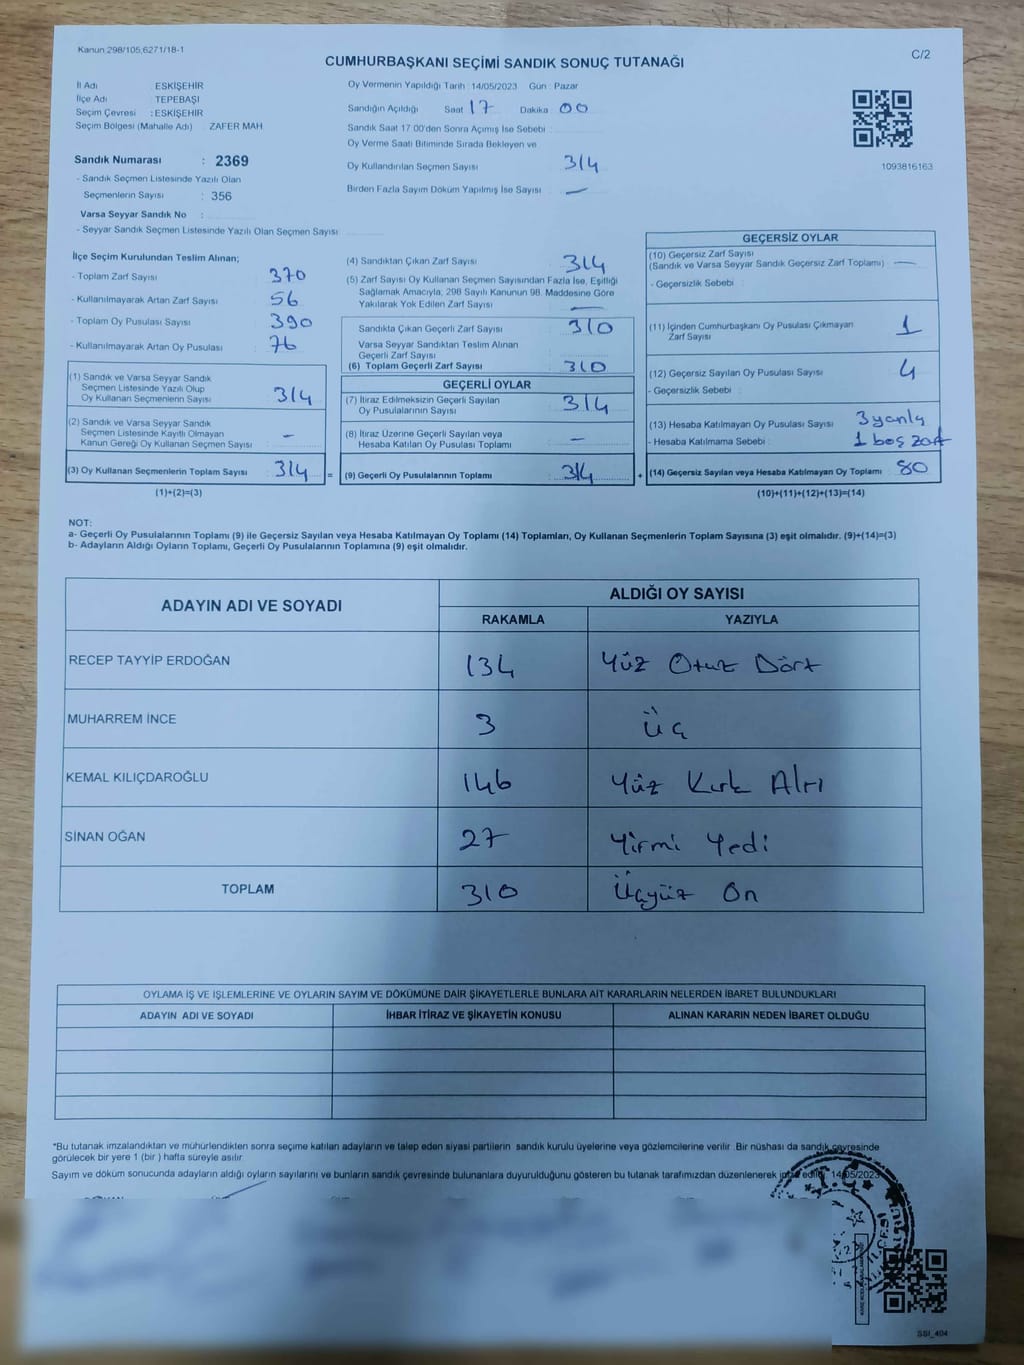 Kanun 298/105,6271/18-1
C/2
CUMHURBAŞKANI SEÇİMİ SANDIK SONUÇ TUTANAĞI
İl Adı ESKİŞEHİR
İlçe Adı TEPEBAŞI
Seçim Çevresi : ESKİŞEHİR
Seçim Bölgesi (Mahalle Adı) : ZAFER MAH
Sandık Numarası : 2369
- Sandık Seçmen Listesinde Yazılı Olan
Seçmenlerin Sayısı : 356
Varsa Seyyar Sandık No :
- Seyyar Sandık Seçmen Listesinde Yazılı Olan Seçmen Sayısı
Oy Vermenin Yapıldığı Tarih : 14/05/2023 Gün : Pazar
Sandığın Açıldığı Saat 17 Dakika 00
Sandık Saat 17 00'den Sonra Açımış İse Sebebi :
Oy Verme Saati Bitiminde Sırada Bekleyen ve
Oy Kullandırılan Seçmen Sayısı 314
Birden Fazla Sayım Döküm Yapılmış İse Sayısı —
1093816163
İlçe Seçim Kurulundan Teslim Alınan;
- Toplam Zarf Sayısı : 370
- Kullanılmayarak Artan Zarf Sayısı : 56
- Toplam Oy Pusulası Sayısı : 390
- Kullanılmayarak Artan Oy Pusulası : 76
(1) Sandık ve Varsa Seyyar Sandık
Seçmen Listesinde Yazılı Olup
Oy Kullanan Seçmenlerin Sayısı : 314
(2) Sandık ve Varsa Seyyar Sandık
Seçmen Listesinde Kayıtlı Olmayan
Kanun Gereği Oy Kullanan Seçmen Sayısı : —
(3) Oy Kullanan Seçmenlerin Toplam Sayısı : 314 =
(1)+(2)=(3)
(4) Sandıktan Çıkan Zarf Sayısı : 314
(5) Zarf Sayısı Oy Kullanan Seçmen Sayısından Fazla İse, Eşitliği
Sağlamak Amacıyla, 298 Sayılı Kanunun 98. Maddesine Göre
Yakılarak Yok Edilen Zarf Sayısı : —
Sandıkta Çıkan Geçerli Zarf Sayısı : 310
Varsa Seyyar Sandıktan Teslim Alınan
Geçerli Zarf Sayısı :
(6) Toplam Geçerli Zarf Sayısı : 310
GEÇERLİ OYLAR
(7) İtiraz Edilmeksizin Geçerli Sayılan
Oy Pusulalarının Sayısı : 314
(8) İtiraz Üzerine Geçerli Sayılan veya
Hesaba Katılan Oy Pusulası Toplamı : —
(9) Geçerli Oy Pusulalarının Toplamı : 314 +
GEÇERSİZ OYLAR
(10) Geçersiz Zarf Sayısı
(Sandık ve Varsa Seyyar Sandık Geçersiz Zarf Toplamı) : —
- Geçersizlik Sebebi :
(11) İçinden Cumhurbaşkanı Oy Pusulası Çıkmayan
Zarf Sayısı : 1
(12) Geçersiz Sayılan Oy Pusulası Sayısı : 4
- Geçersizlik Sebebi :
(13) Hesaba Katılmayan Oy Pusulası Sayısı : 3 yanlış
- Hesaba Katılmama Sebebi : 1 boş zarf
(14) Geçersiz Sayılan veya Hesaba Katılmayan Oy Toplamı : 80
(10)+(11)+(12)+(13)=(14)
NOT:
a- Geçerli Oy Pusulalarının Toplamı (9) ile Geçersiz Sayılan veya Hesaba Katılmayan Oy Toplamı (14) Toplamları, Oy Kullanan Seçmenlerin Toplam Sayısına (3) eşit olmalıdır. (9)+(14)=(3)
b- Adayların Aldığı Oyların Toplamı, Geçerli Oy Pusulalarının Toplamına (9) eşit olmalıdır.
ADAYIN ADI VE SOYADI
ALDIĞI OY SAYISI
RAKAMLA YAZIYLA
RECEP TAYYİP ERDOĞAN 134 Yüz Otuz Dört
MUHARREM İNCE 3 Üç
KEMAL KILIÇDAROĞLU 146 Yüz Kırk Altı
SİNAN OĞAN 27 Yirmi Yedi
TOPLAM 310 Üçyüz On
OYLAMA İŞ VE İŞLEMLERİNE VE OYLARIN SAYIM VE DÖKÜMÜNE DAİR ŞİKAYETLERLE BUNLARA AİT KARARLARIN NELERDEN İBARET BULUNDUKLARI
ADAYIN ADI VE SOYADI İHBAR İTİRAZ VE ŞİKAYETİN KONUSU ALINAN KARARIN NEDEN İBARET OLDUĞU
*Bu tutanak imzalandıktan ve mühürlendikten sonra seçime katılan adayların ve talep eden siyasi partilerin sandık kurulu üyelerine veya gözlemcilerine verilir Bir nüshası da sandık çevresinde
görülecek bir yere 1 (bir ) hafta süreyle asılır
Sayım ve döküm sonucunda adayların aldığı oyların sayılarını ve bunların sandık çevresinde bulunanlara duyurulduğunu gösteren bu tutanak tarafımızdan düzenlenerek edildi 14/05/2023
T.C.
SSI_404